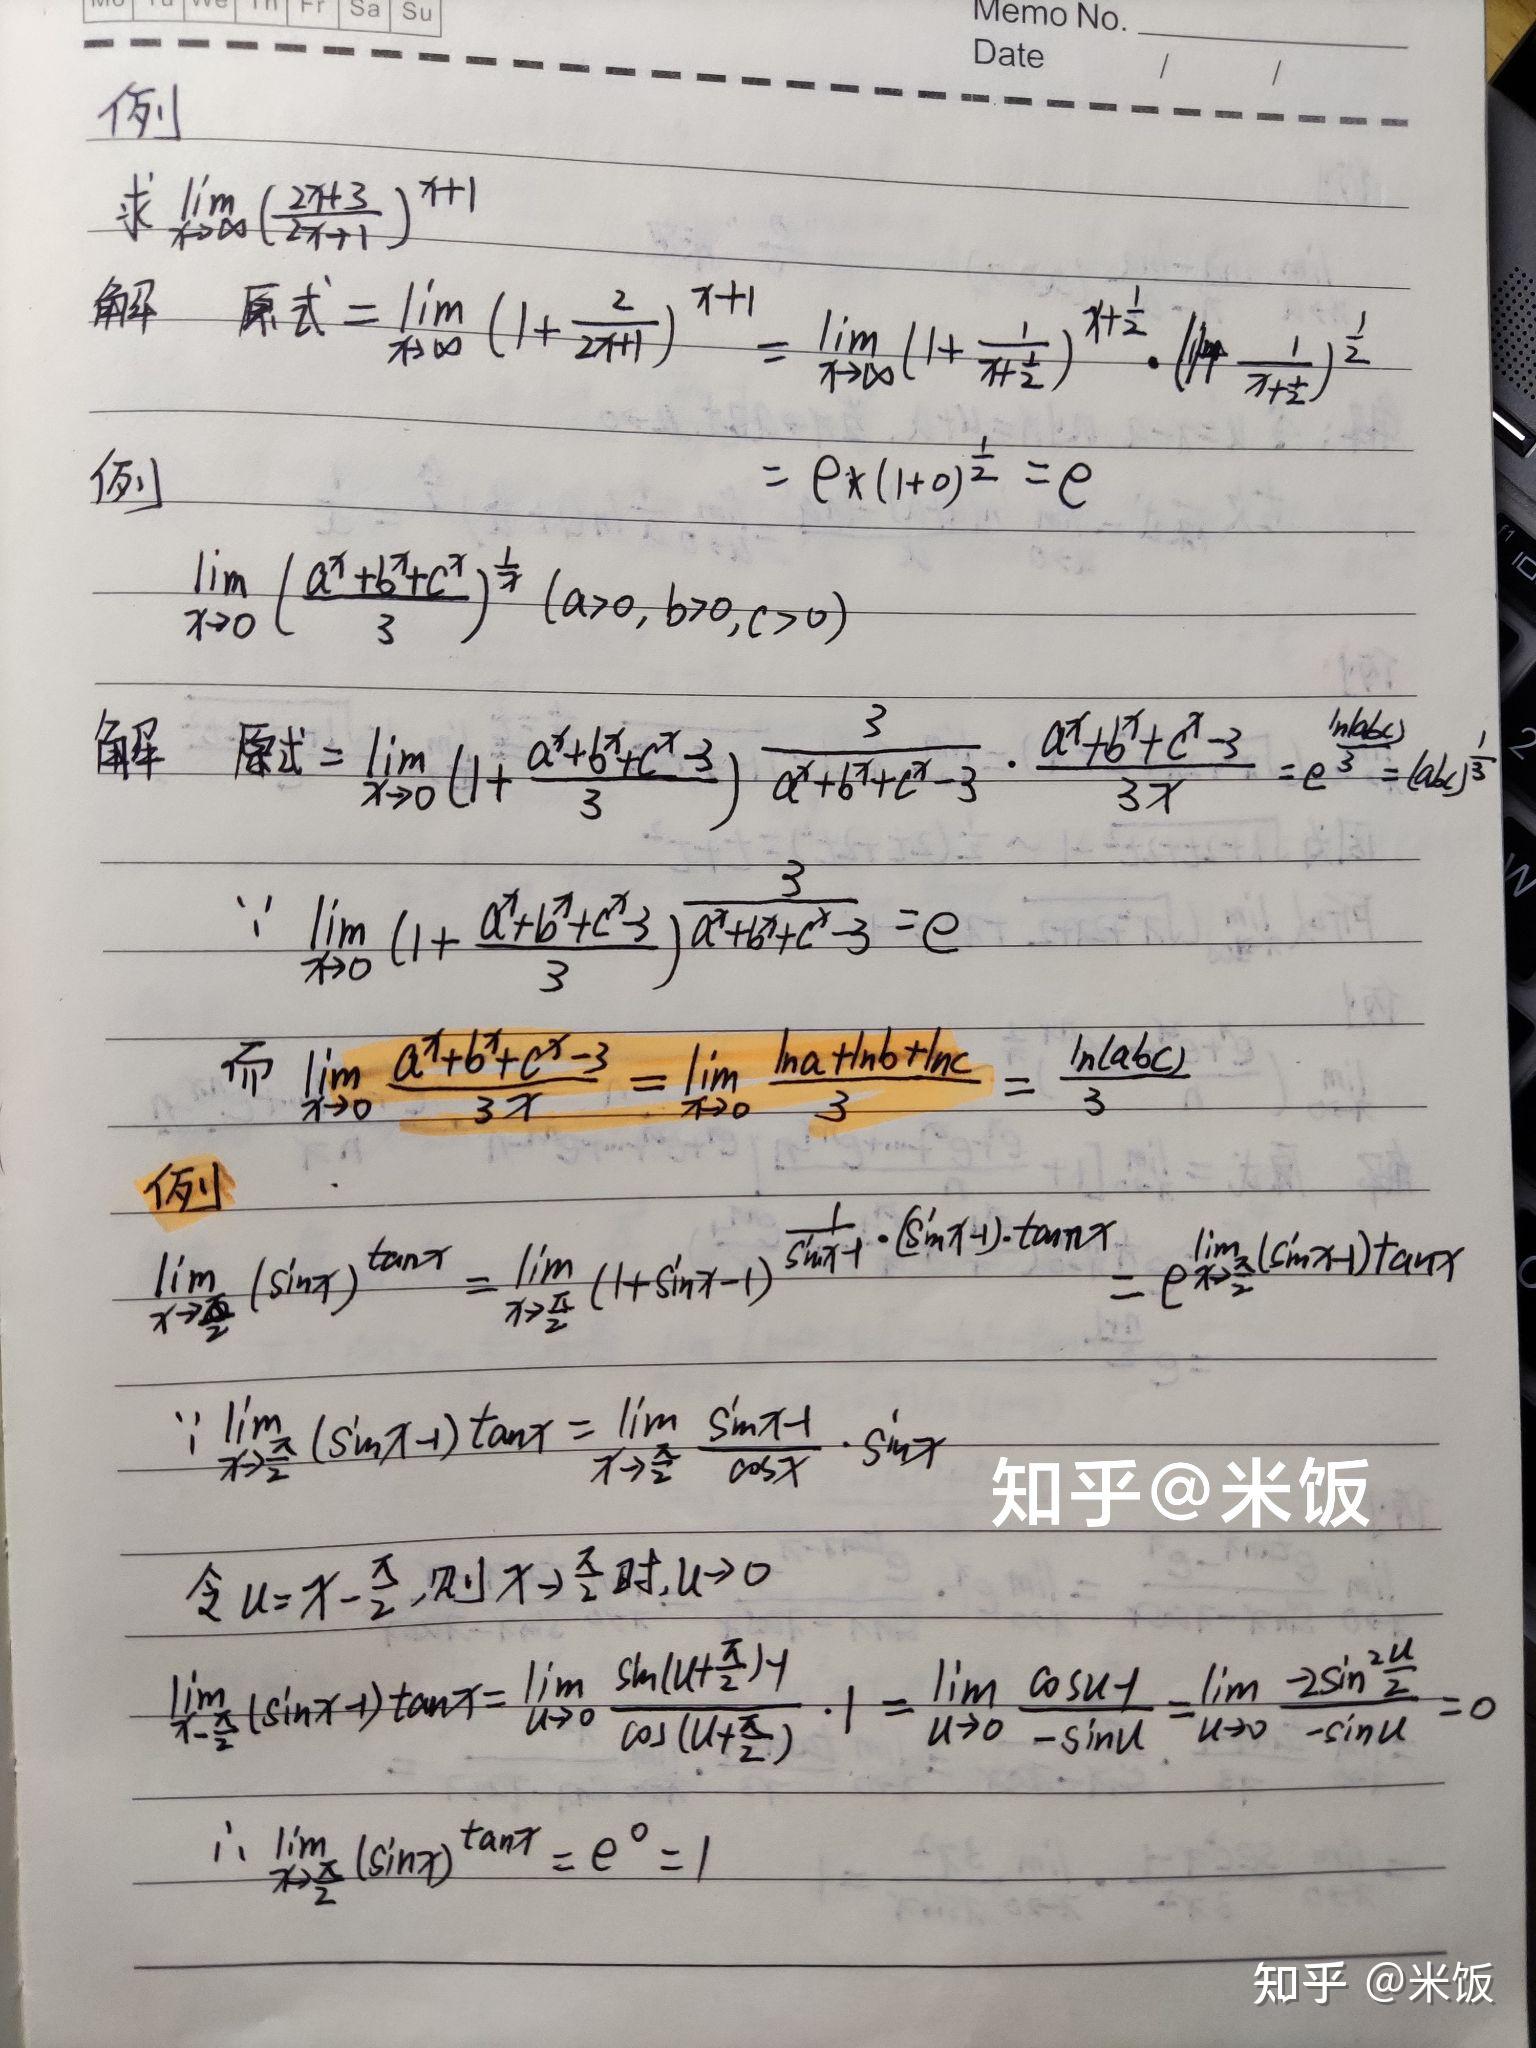 Mo Tu We Th Fr Sa Su
Memo No.
Date / /
例
求 lim x→∞ (2x+3/2x+1)^x+1
解 原式 = lim x→∞ (1+ 2/2x+1)^x+1 = lim x→∞ (1+ 1/x+1/2)^x+1/2 · ( 1/x+1/2)^1/2
= e*(1+0)^1/2 = e
例
lim x→0 (a^x+b^x+c^x/3)^1/x (a>0, b>0, c>0)
解 原式 = lim x→0 (1+ a^x+b^x+c^x-3/3) ^3/a^x+b^x+c^x-3 · a^x+b^x+c^x-3/3x = e^ln(abc)/3 = (abc)^1/3
∵ lim x→0 (1+ a^x+b^x+c^x-3/3)^3/a^x+b^x+c^x-3 = e
而 lim x→0 a^x+b^x+c^x-3/3x = lim x→0 lna+lnb+lnc/3 = ln(abc)/3
例
lim x→π/2 (sinx)^tanx = lim x→π/2 (1+sinx-1)^1/sinx-1 · (sinx-1)·tanx = e^lim x→π/2 (sinx-1)tanx
∵ lim x→π/2 (sinx-1)tanx = lim x→π/2 sinx-1/cosx · sinx
知乎@米饭
令 u=x-π/2, 则 x→π/2 时, u→0
lim x-π/2 (sinx-1)tanx = lim u→0 sin(u+π/2)-1/cos(u+π/2) · 1 = lim u→0 cosu-1/-sinu = lim u→0 -2sin^2 u/2/-sinu = 0
∴ lim x→π/2 (sinx)^tanx = e^0 = 1
知乎 @米饭